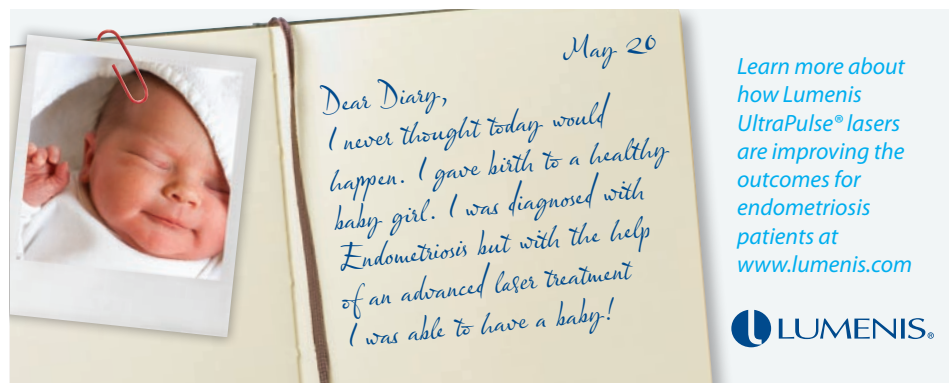 May 20
Dear Diary,
I never thought today would
happen. I gave birth to a healthy
baby girl. I was diagnosed with
Endometriosis but with the help
of an advanced laser treatment
I was able to have a baby!
Learn more about
how Lumenis
UltraPulse® lasers
are improving the
outcomes for
endometriosis
patients at
www.lumenis.com
LUMENIS®